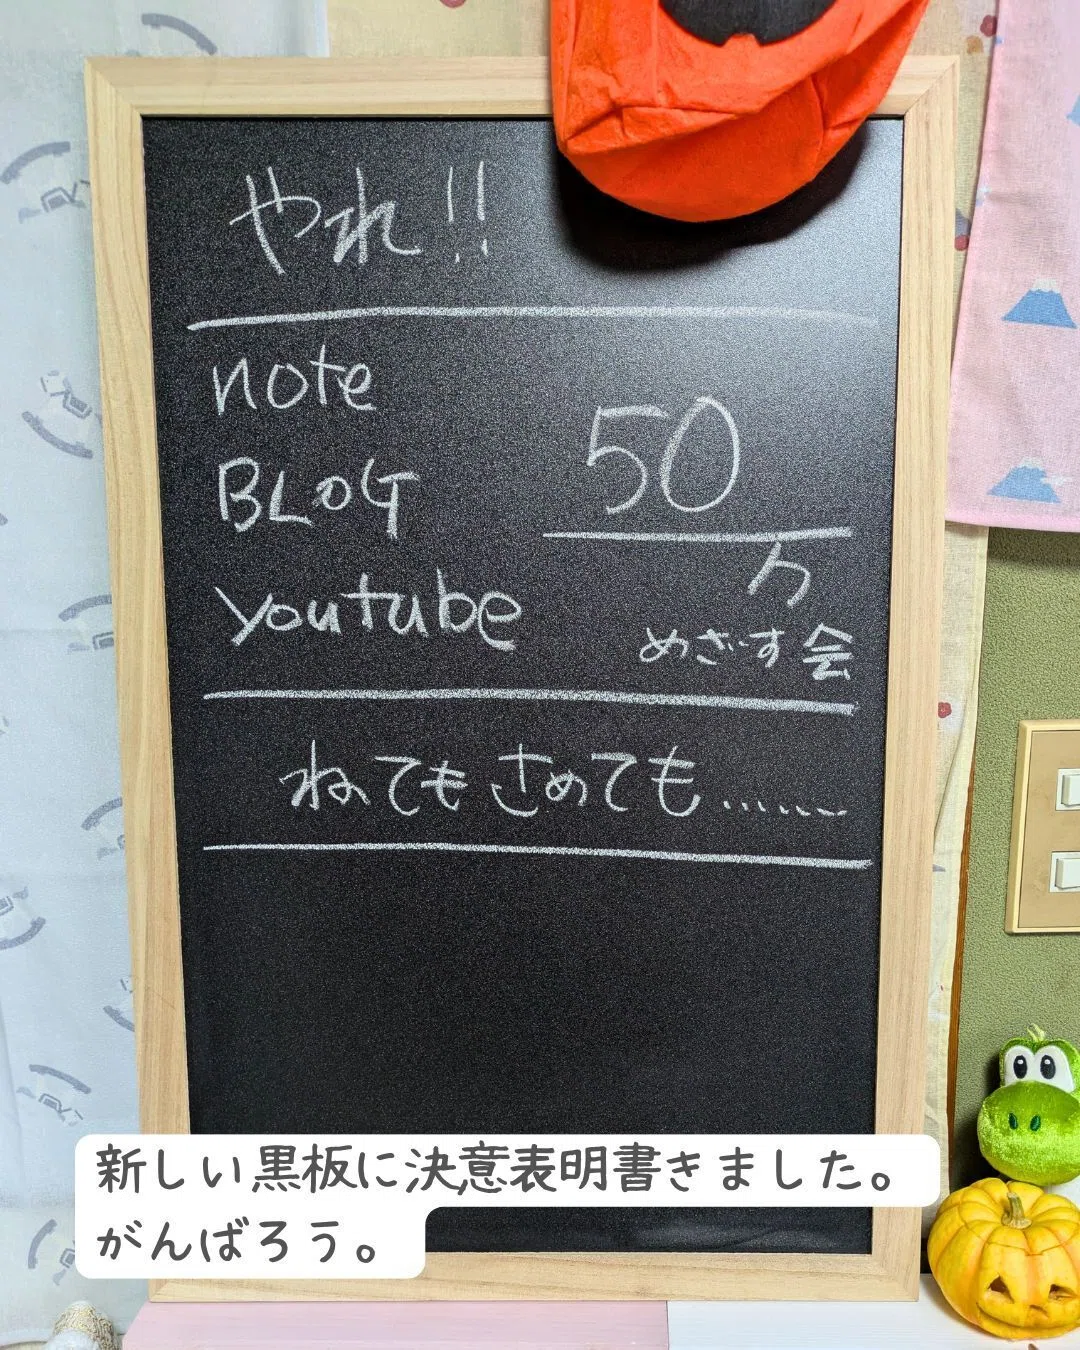 やれ!!
note
BLOG
youtube
50
万
めざーす会
ねてもさめても……
新しい黒板に決意表明書きました。
がんばろう。